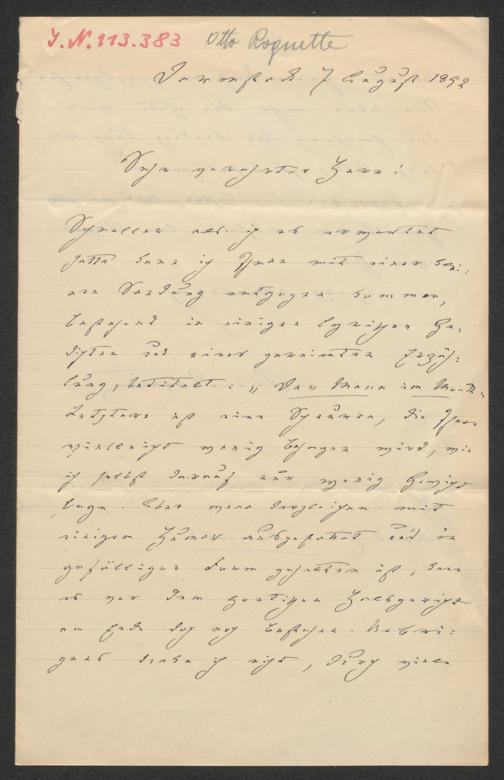 I.N. 113.383 Otto Roquette
Darmstadt 7 August 1892
Sehr verehrter Herr!
Schneller als ich es erwartet
hatte kann ich Ihnen mit einer klei-
nen Sendung entgegen kommen,
bestehend in einigen lyrischen Ge-
dichten und einer gereimten Erzäh-
lung, betitelt: „Der Mann im Monde."
Letztere ist eine Schnurre, die Ihnen
vielleicht wenig behagen wird, wie
ich selbst darauf nur wenig Gewicht
lege. Aber wenn dergleichen mit
einigem Humor ausgestattet und in
gefälliger Form gehalten ist, kann
es vor dem heutigen Halsgericht
am Ende doch noch bestehen. Uebri-
gens denke ich nicht, durch viele